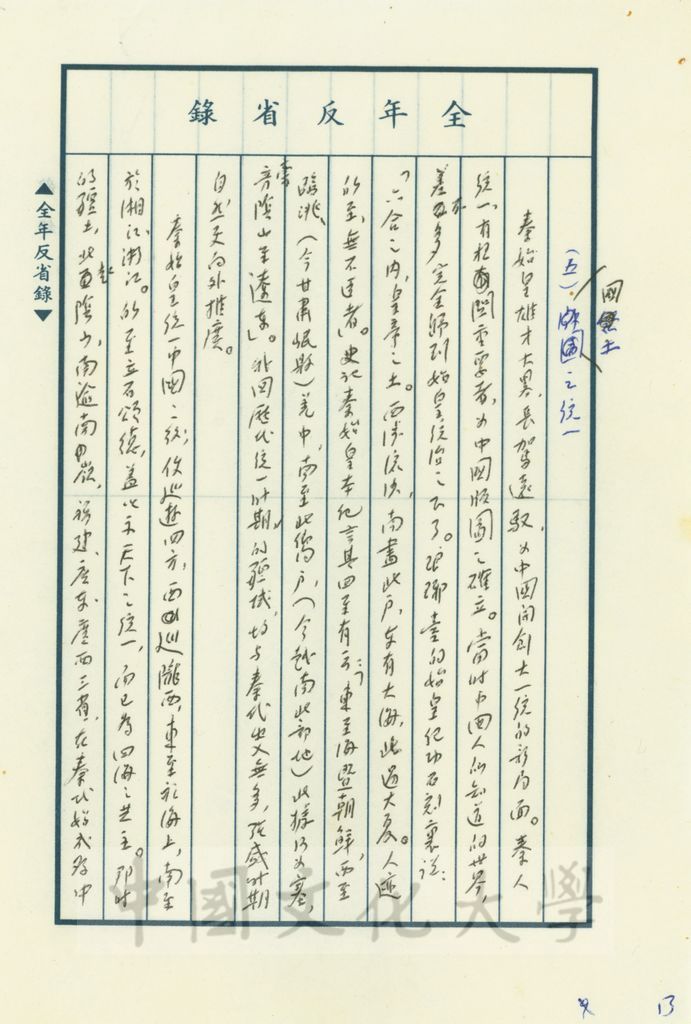 全年反省錄
國土
(五)版圖之統一
秦始皇雄才大略,長駕遠馭,為中國開創大一統的新局面。秦人
統一,有極關重要者,為中國版圖之確立。當時中國人所知道的世界,
差不多完全歸到始皇統治之下了。琅琊臺的始皇紀功石刻裏說:
「六合之內,皇帝之土。西涉流沙,南盡北戶,東有大海,北過大夏。人迹
所至,無不臣者」。史記秦始皇本紀言其四至有云:「東至海暨朝鮮,西至
臨洮、(今甘肅岷縣)羌中,南至北嚮戶,(今越南北部地)北據河為塞,
並陰山至遼東」。我國歷代統一時期,的疆域,均與秦代出入無多,強盛時期
自然更向外推廣。
秦始皇統一中國之後,便巡遊四方,西巡隴西,東至於海上,南至
於湘江、浙江。所至立石頌德,蓋以示天下之統一,而已為四海之共主。那時
的疆土,北至陰山,南逾南嶺,福建、廣東、廣西三省,在秦代始成為中
▲全年反省錄▼
中國文化大學
13